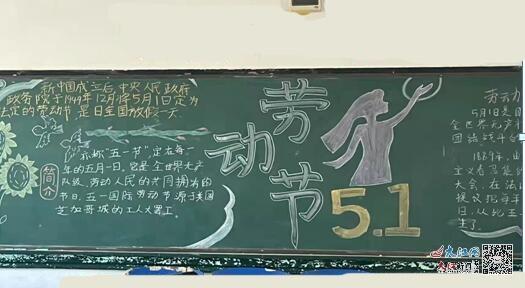 新中国成立后,中央人民政府
政务院于1949年12月将5月1日定为
法定的劳动节,是日全国放假一天.
简介
亦称"五一节"定在每一
年的五月一日.它是全世界无产
阶级、劳动人民的共同拥有的
节日.五一国际劳动节源于美国
芝加哥城的工人大罢工.
劳动节
5.1
劳动
5月1日是目
全世界无产
团结战斗
1889年,由
主义者马
大会,在法
提议把每年
日,从此五
生了.
大江网